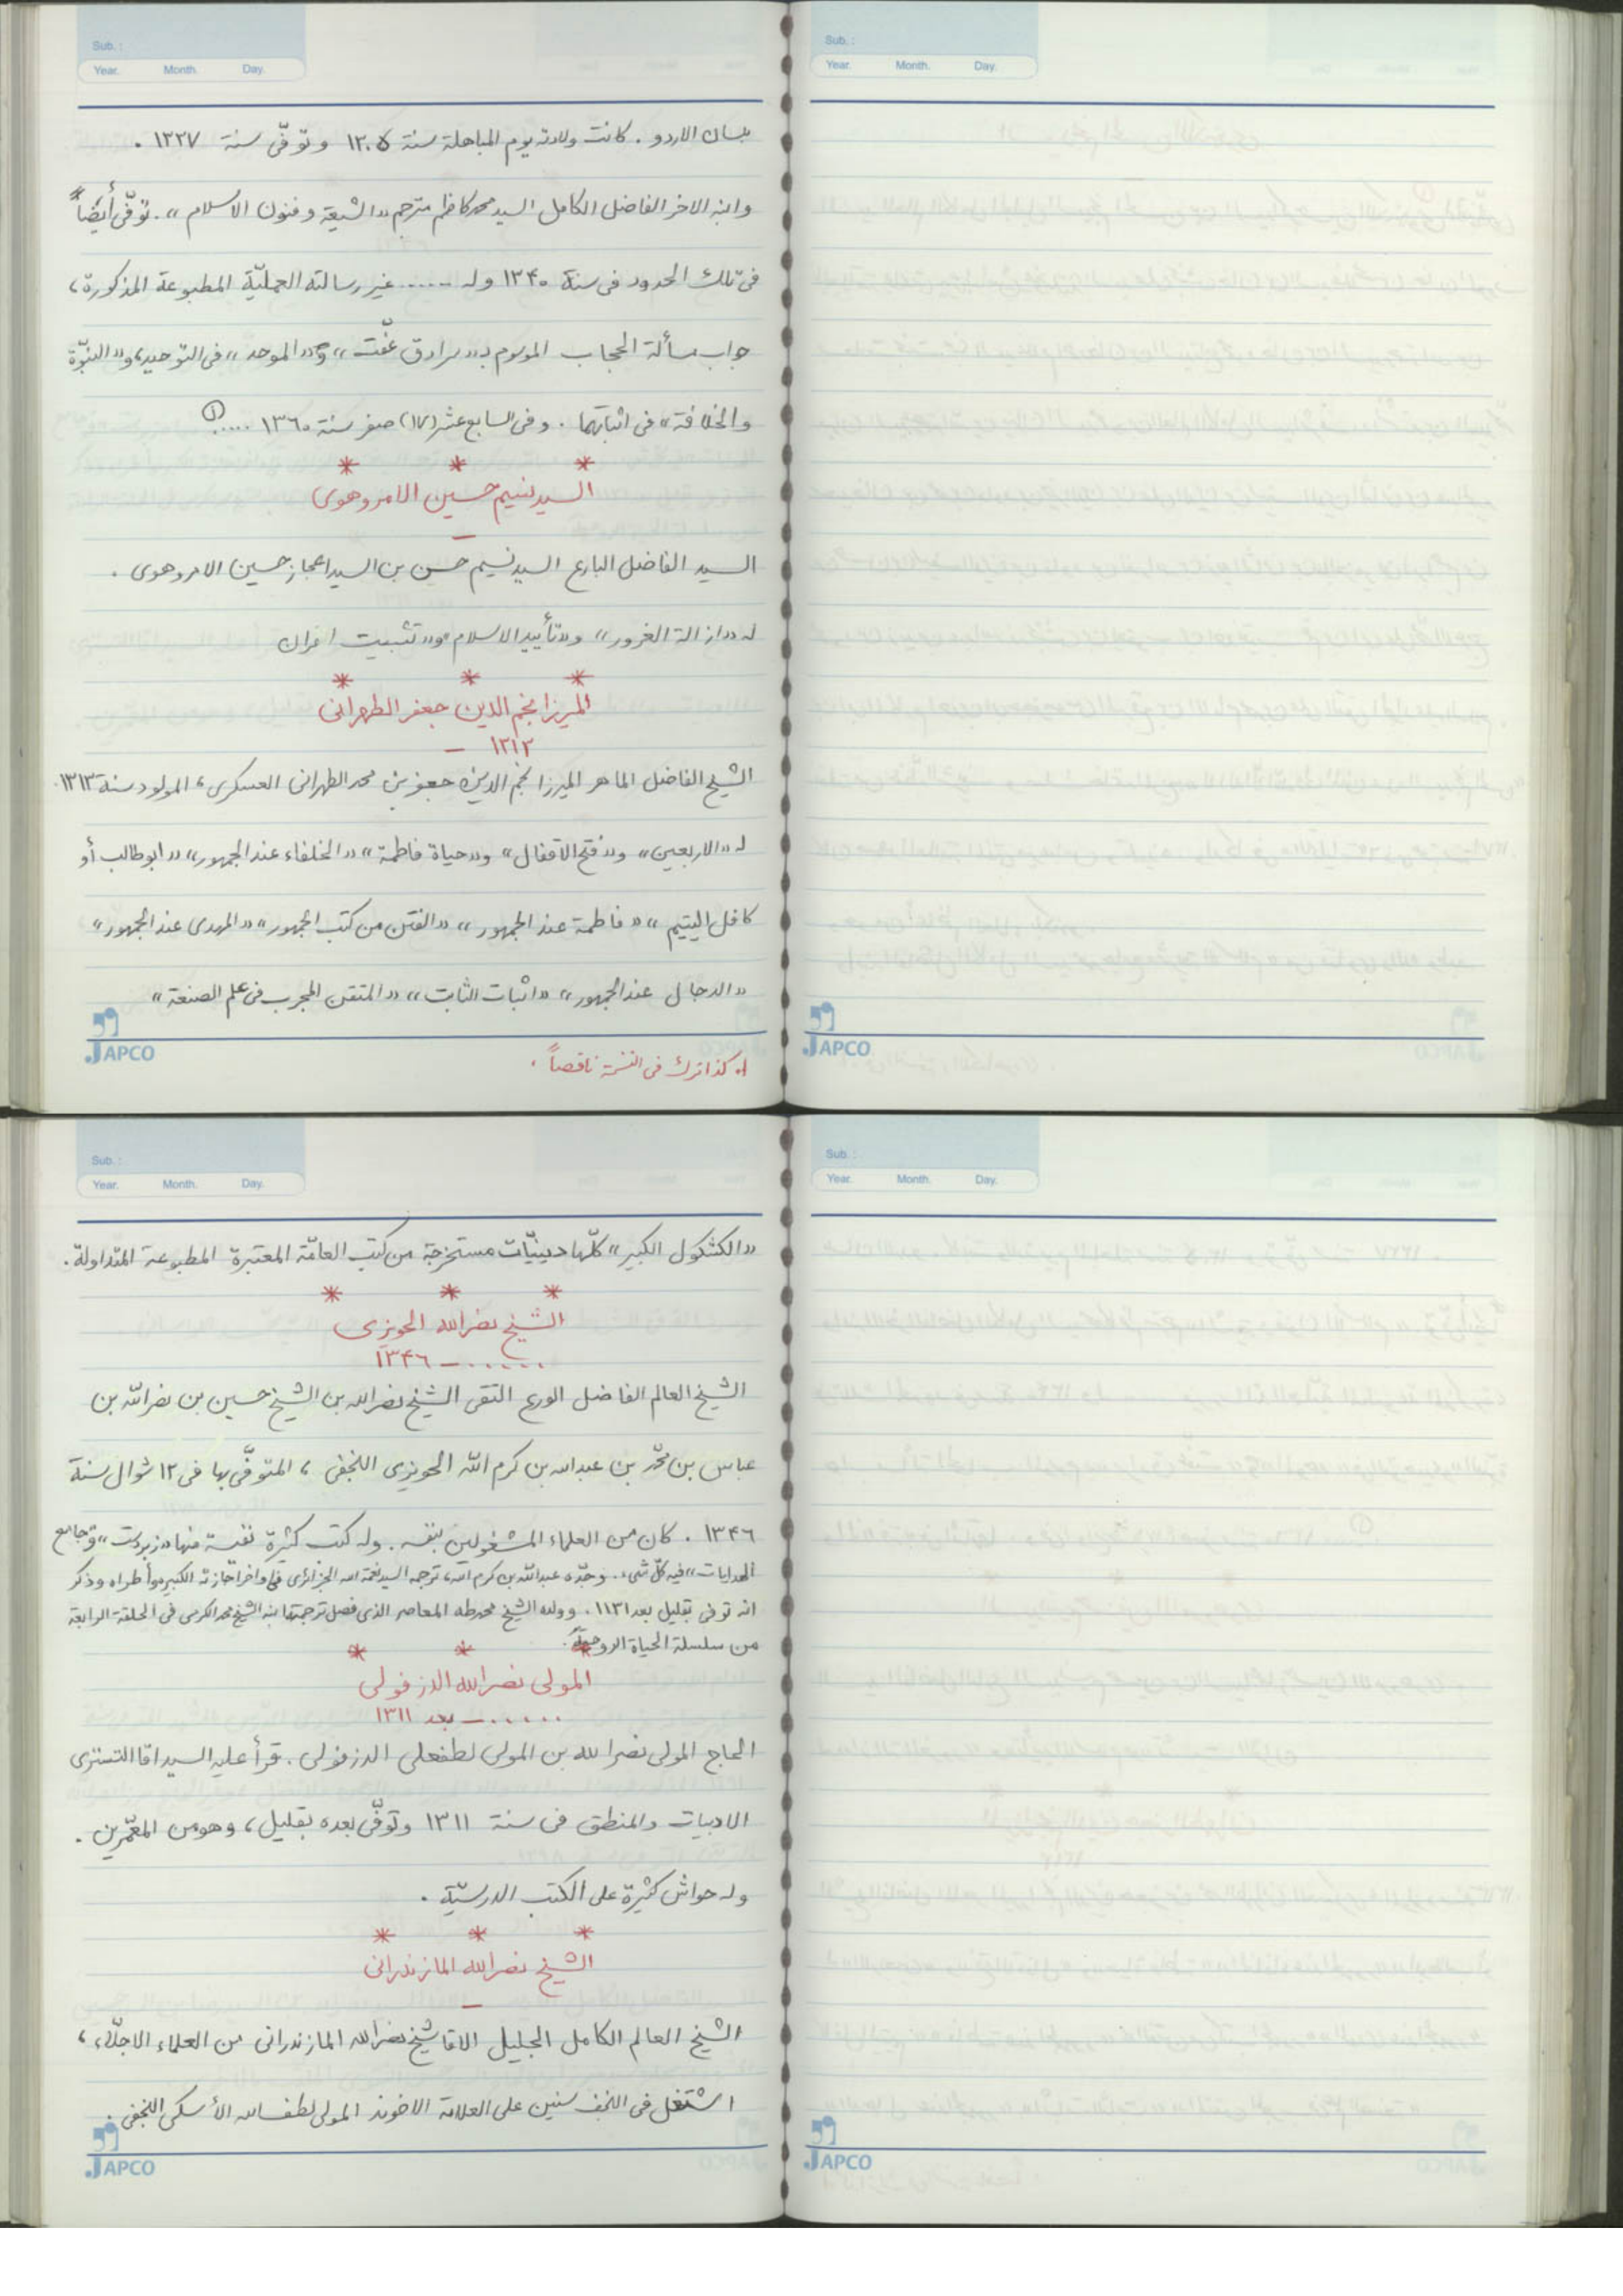 Sub. :
Year. Month. Day.
بلسان الاردو . كانت ولادته يوم المباهلة سنة ١٣٠٥ وتوفّى سنة ١٣٣٧ .
وابنه الاخر الفاضل الكامل السيد محمد كاظم مترجم «الشيعة و فنون الاسلام» . توفّى أيضاً
فى تلك الحدود فى سنة ١٣٤٠ وله ...... غير رسالته العمليّة المطبوعة المذكورة ،
جواب مسألة الحجاب الموسوم بـ«سرادق عفّت» و«الموحد» فى التوحيد، و«النبوّة
والخلافة» فى اثباتهما . وفى السابع عشر (١٧) صفر سنة ١٣٦٠ ..... (١)
* * *
السيد نسيم حسين الامروهوى
–
السيد الفاضل البارع السيد نسيم حسن بن السيد اعجاز حسين الامروهوى .
له «ازالة الغرور» و«تأييد الاسلام» و«تثبيت
* * *
الميرزا نجم الدين جعفر الطهرانى
١٣١٣ –
الشيخ الفاضل الماهر الميرزا نجم الدين جعفر بن محمد الطهرانى العسكرى ، المولود سنة ١٣١٣.
له «الاربعين» و«فتح الاقفال» و«حياة فاطمة» «الخلفاء عند الجمهور» «ابوطالب أو
كافل اليتيم» «فاطمة عند الجمهور» «الفتن من كتب الجمهور» «المهدى عند الجمهور»
«الدجال عند الجمهور» «اثبات الثابت» «المتقن المجرب فى علم الصنعة»
JAPCO
١. كذا ترك فى النسخة ناقصاً .
Sub. :
Year. Month. Day.
JAPCO
Sub. :
Year. Month. Day.
«الكشكول الكبير» كلّها دينيّات مستخرجة من كتب العامّة المعتبرة المطبوعة المتداولة .
* * *
الشيخ نصرالله الحويزى
...... – ١٣٤٦
الشيخ العالم الفاضل الورع التقى الشيخ نصرالله بن الشيخ حسين بن نصرالله بن
عباس بن محمّد بن عبدالله بن كرم الله الحويزى النجفى ، المتوفّى بها فى ١٢ شوال سنة
١٣٤٦ . كان من العلماء المشغولين بنفسه . وله كتب كثيرة نفيسة منها «زبردست» و«جامع
الهدايات» فيه كلّ شىء . وجدّه عبدالله بن كرم الله ، ترجمه السيد نعمة الله الجزائرى فى اواخر اجازته الكبيرة وأطراه وذكر
انه توفى بقليل بعد ١١٣١ . وولده الشيخ محمد طه المعاصر الذى فصل ترجمتها ابنه الشيخ محمد الكرمى فى الحلقة الرابعة
من سلسلة الحياة الروحية .
* * *
المولى نصرالله الدزفولى
...... – بعد ١٣١١
الحاج المولى نصرالله بن المولى لطفعلى الدزفولى . قرأ عليه السيد اقا التسترى
الادبيات والمنطق فى سنة ١٣١١ وتوفّى بعده بقليل ، وهو من المعمّرين .
وله حواش كثيرة على الكتب الدرسيّة .
* * *
الشيخ نصرالله المازندرانى
–
الشيخ العالم الكامل الجليل الاقا شيخ نصرالله المازندرانى من العلماء الاجلّاء ،
اشتغل فى النجف سنين على العلامة الاخوند المولى لطف الله الأسكى النجفى .
JAPCO
Sub. :
Year. Month. Day.
JAPCO